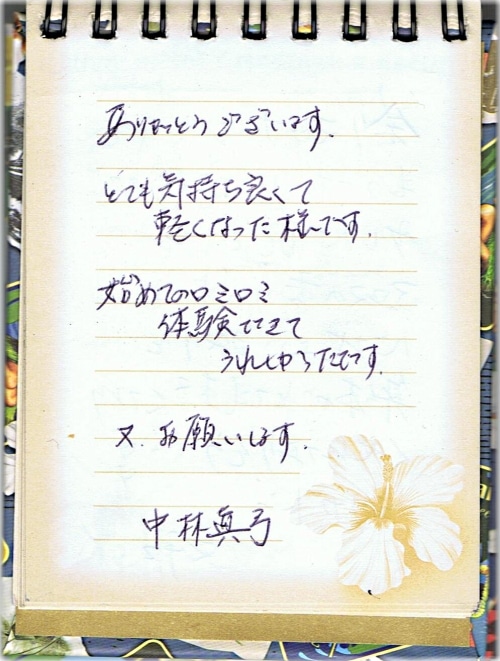 ありがとうございます.
とても気持ち良くて
軽くなった様です.
始めてのロミロミ
体験できて
うれしかったです.
又、お願いします.
中林真弓